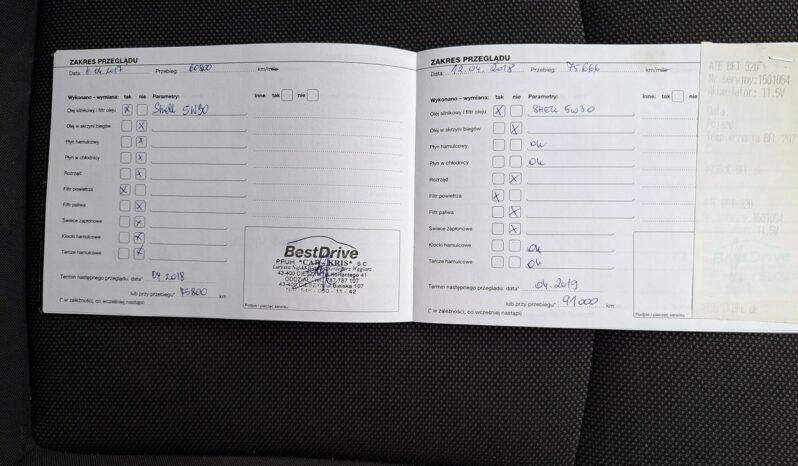 ZAKRES PRZEGLĄDU
Data: 8.04.2017 Przebieg: 60800 km/mile
Wykonano – wymiana: tak nie Parametry: Inne: tak nie
Olej silnikowy i filtr oleju X Shell 5W30
Olej w skrzyni biegów X
Płyn hamulcowy X
Płyn w chłodnicy X
Rozrząd X
Filtr powietrza X
Filtr paliwa X
Świece zapłonowe X
Klocki hamulcowe X
Tarcze hamulcowe X
Termin następnego przeglądu: data* 04.2018
lub przy przebiegu* 75800 km
(* w zależności, co wcześniej nastąpi)
BestDrive
PPUH "CAR-KRIS" S.C.
43-400
ODDZIAŁ
43-400 CIESZYN, ul. Bielska 107
Podpis i pieczęć serwisu
ZAKRES PRZEGLĄDU
Data: 12.04.2018 Przebieg: 75666 km/mile
Wykonano – wymiana: tak nie Parametry: Inne: tak nie
Olej silnikowy i filtr oleju X SHELL 5W30
Olej w skrzyni biegów X
Płyn hamulcowy ok
Płyn w chłodnicy ok
Rozrząd X
Filtr powietrza X
Filtr paliwa X
Świece zapłonowe X
Klocki hamulcowe ok
Tarcze hamulcowe ok
Termin następnego przeglądu: data* 04.2019
lub przy przebiegu* 91000 km
(* w zależności, co wcześniej nastąpi)
Podpis i pieczęć serwisu
ATE BFT 320
Nr seryjny:1501054
Akumulator: 11.5V
Data:
ATE BFT 320
:1501054
11.5V